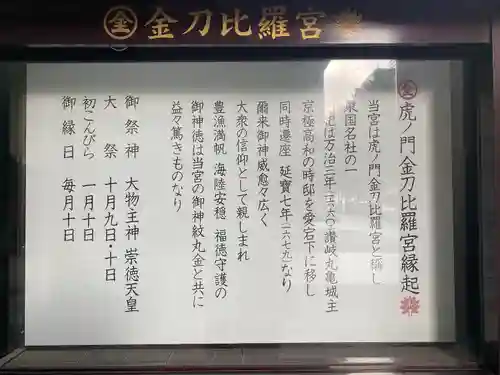 金 金刀比羅宮
金 虎ノ門金刀比羅宮縁起
当宮は虎ノ門金刀比羅宮と稱し
東国名社の一
は万治三年(一六六〇)讃岐丸亀城主
京極高和の時邸を愛宕下に移し
同時遷座 延寶七年(一六七九)なり
爾来御神威愈々広く
大衆の信仰として親しまれ
豊漁満帆 海陸安穏 福徳守護の
御神徳は当宮の御神紋丸金と共に
益々篤きものなり
御祭神 大物主神 崇徳天皇
大祭 十月九日・十日
初こんぴら 一月十日
御縁日 毎月十日